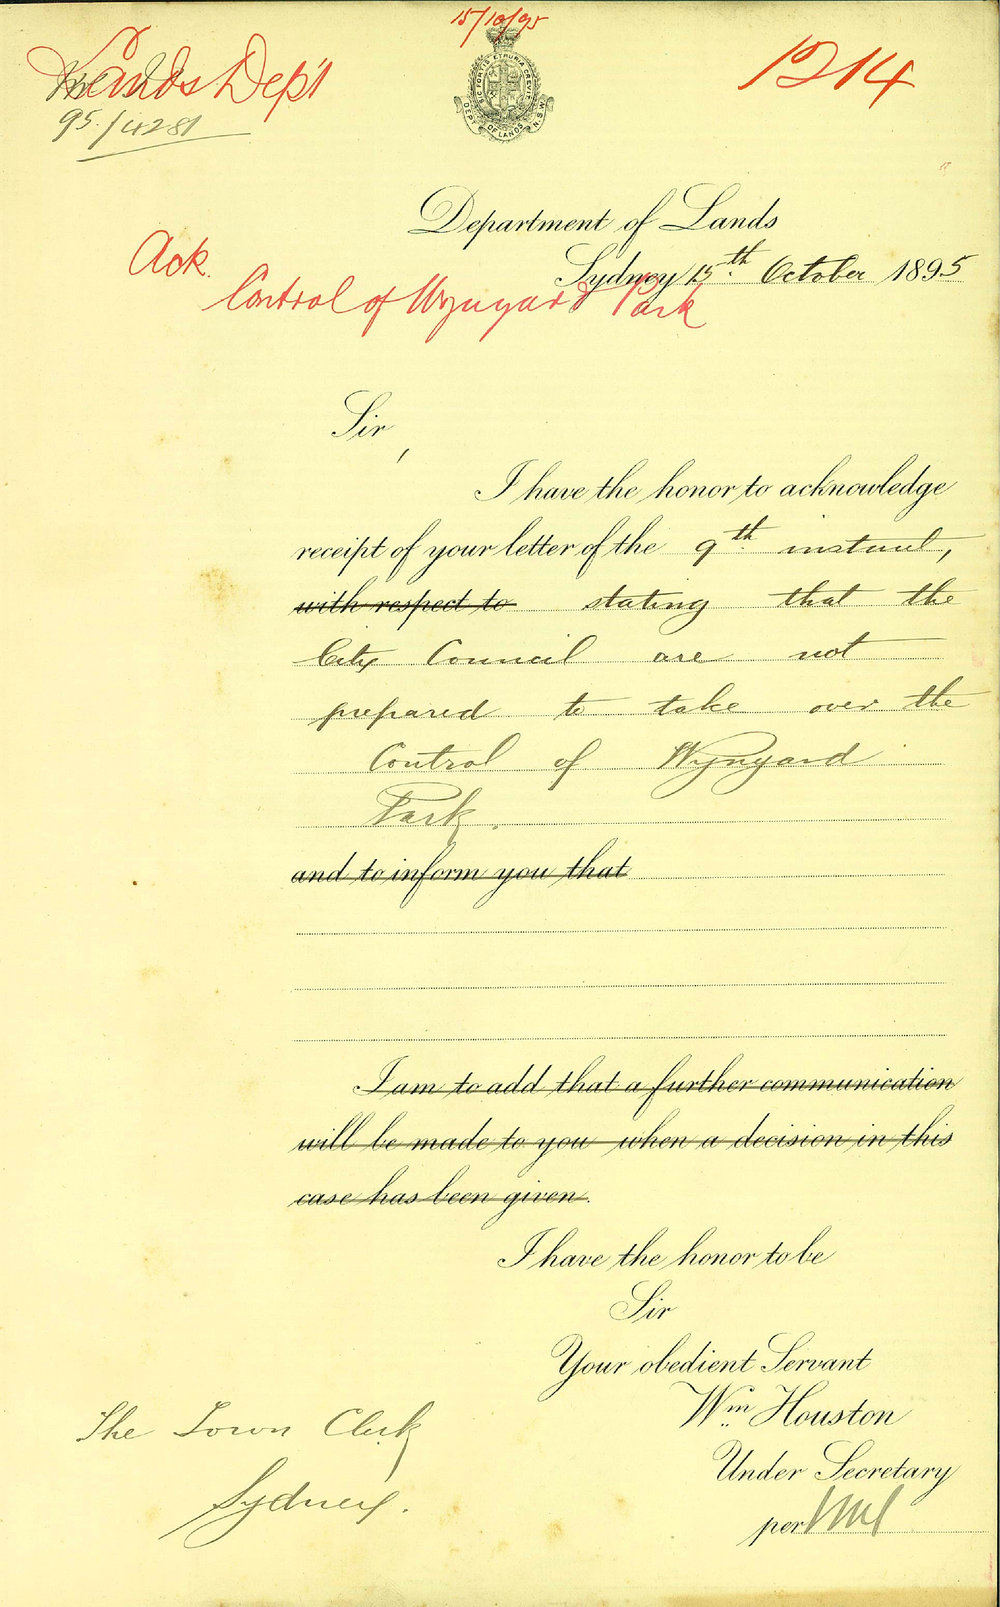 15/10/95
1214
Lands Dep't
95/4281
SIC FORTIS ETRURIA CREVIT
DEPT OF LANDS N.S.W.
Department of Lands
Ack.
Sydney 15th October 1895
Control of Wynyard Park
Sir,
I have the honor to acknowledge
receipt of your letter of the 9th instant,
with respect to stating that the
City Council are not
prepared to take over the
Control of Wynyard
Park.
and to inform you that
I am to add that a further communication
will be made to you when a decision in this
case has been given.
I have the honor to be
Sir
Your obedient Servant
Wm Houston
The Town Clerk
Under Secretary
Sydney.
per